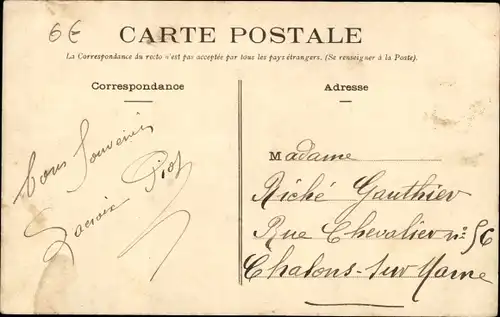 6€
CARTE POSTALE
La Correspondance du recto n'est pas acceptée par tous les pays étrangers. (Se renseigner à la Poste).
Correspondance
Adresse
Bons Souvenirs
Lacroix Piot
Madame
Riché Gauthier
Rue Chevalier n° 56
Chalons-sur-Marne